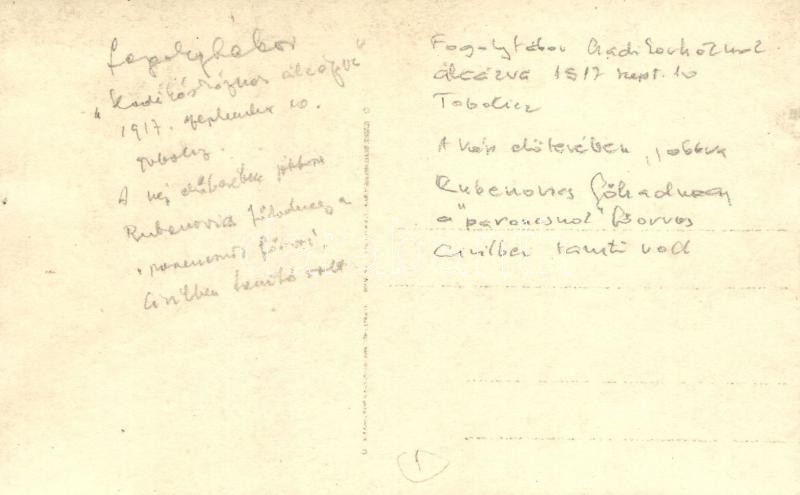 fogolytábor
"Hadikórháznak álcázva"
1917. szeptember 10.
Tobolcz.
A kép előterében jobbra
Rubenovics főhadnagy a
"parancsnok főorvos",
Civilben tanító volt
Fogolytábor Hadikórháznak
álcázva 1917 szept. 10
A kép előterében, jobbra
Rubenovics főhadnagy
a "parancsnok" főorvos
Civilben tanító volt
1